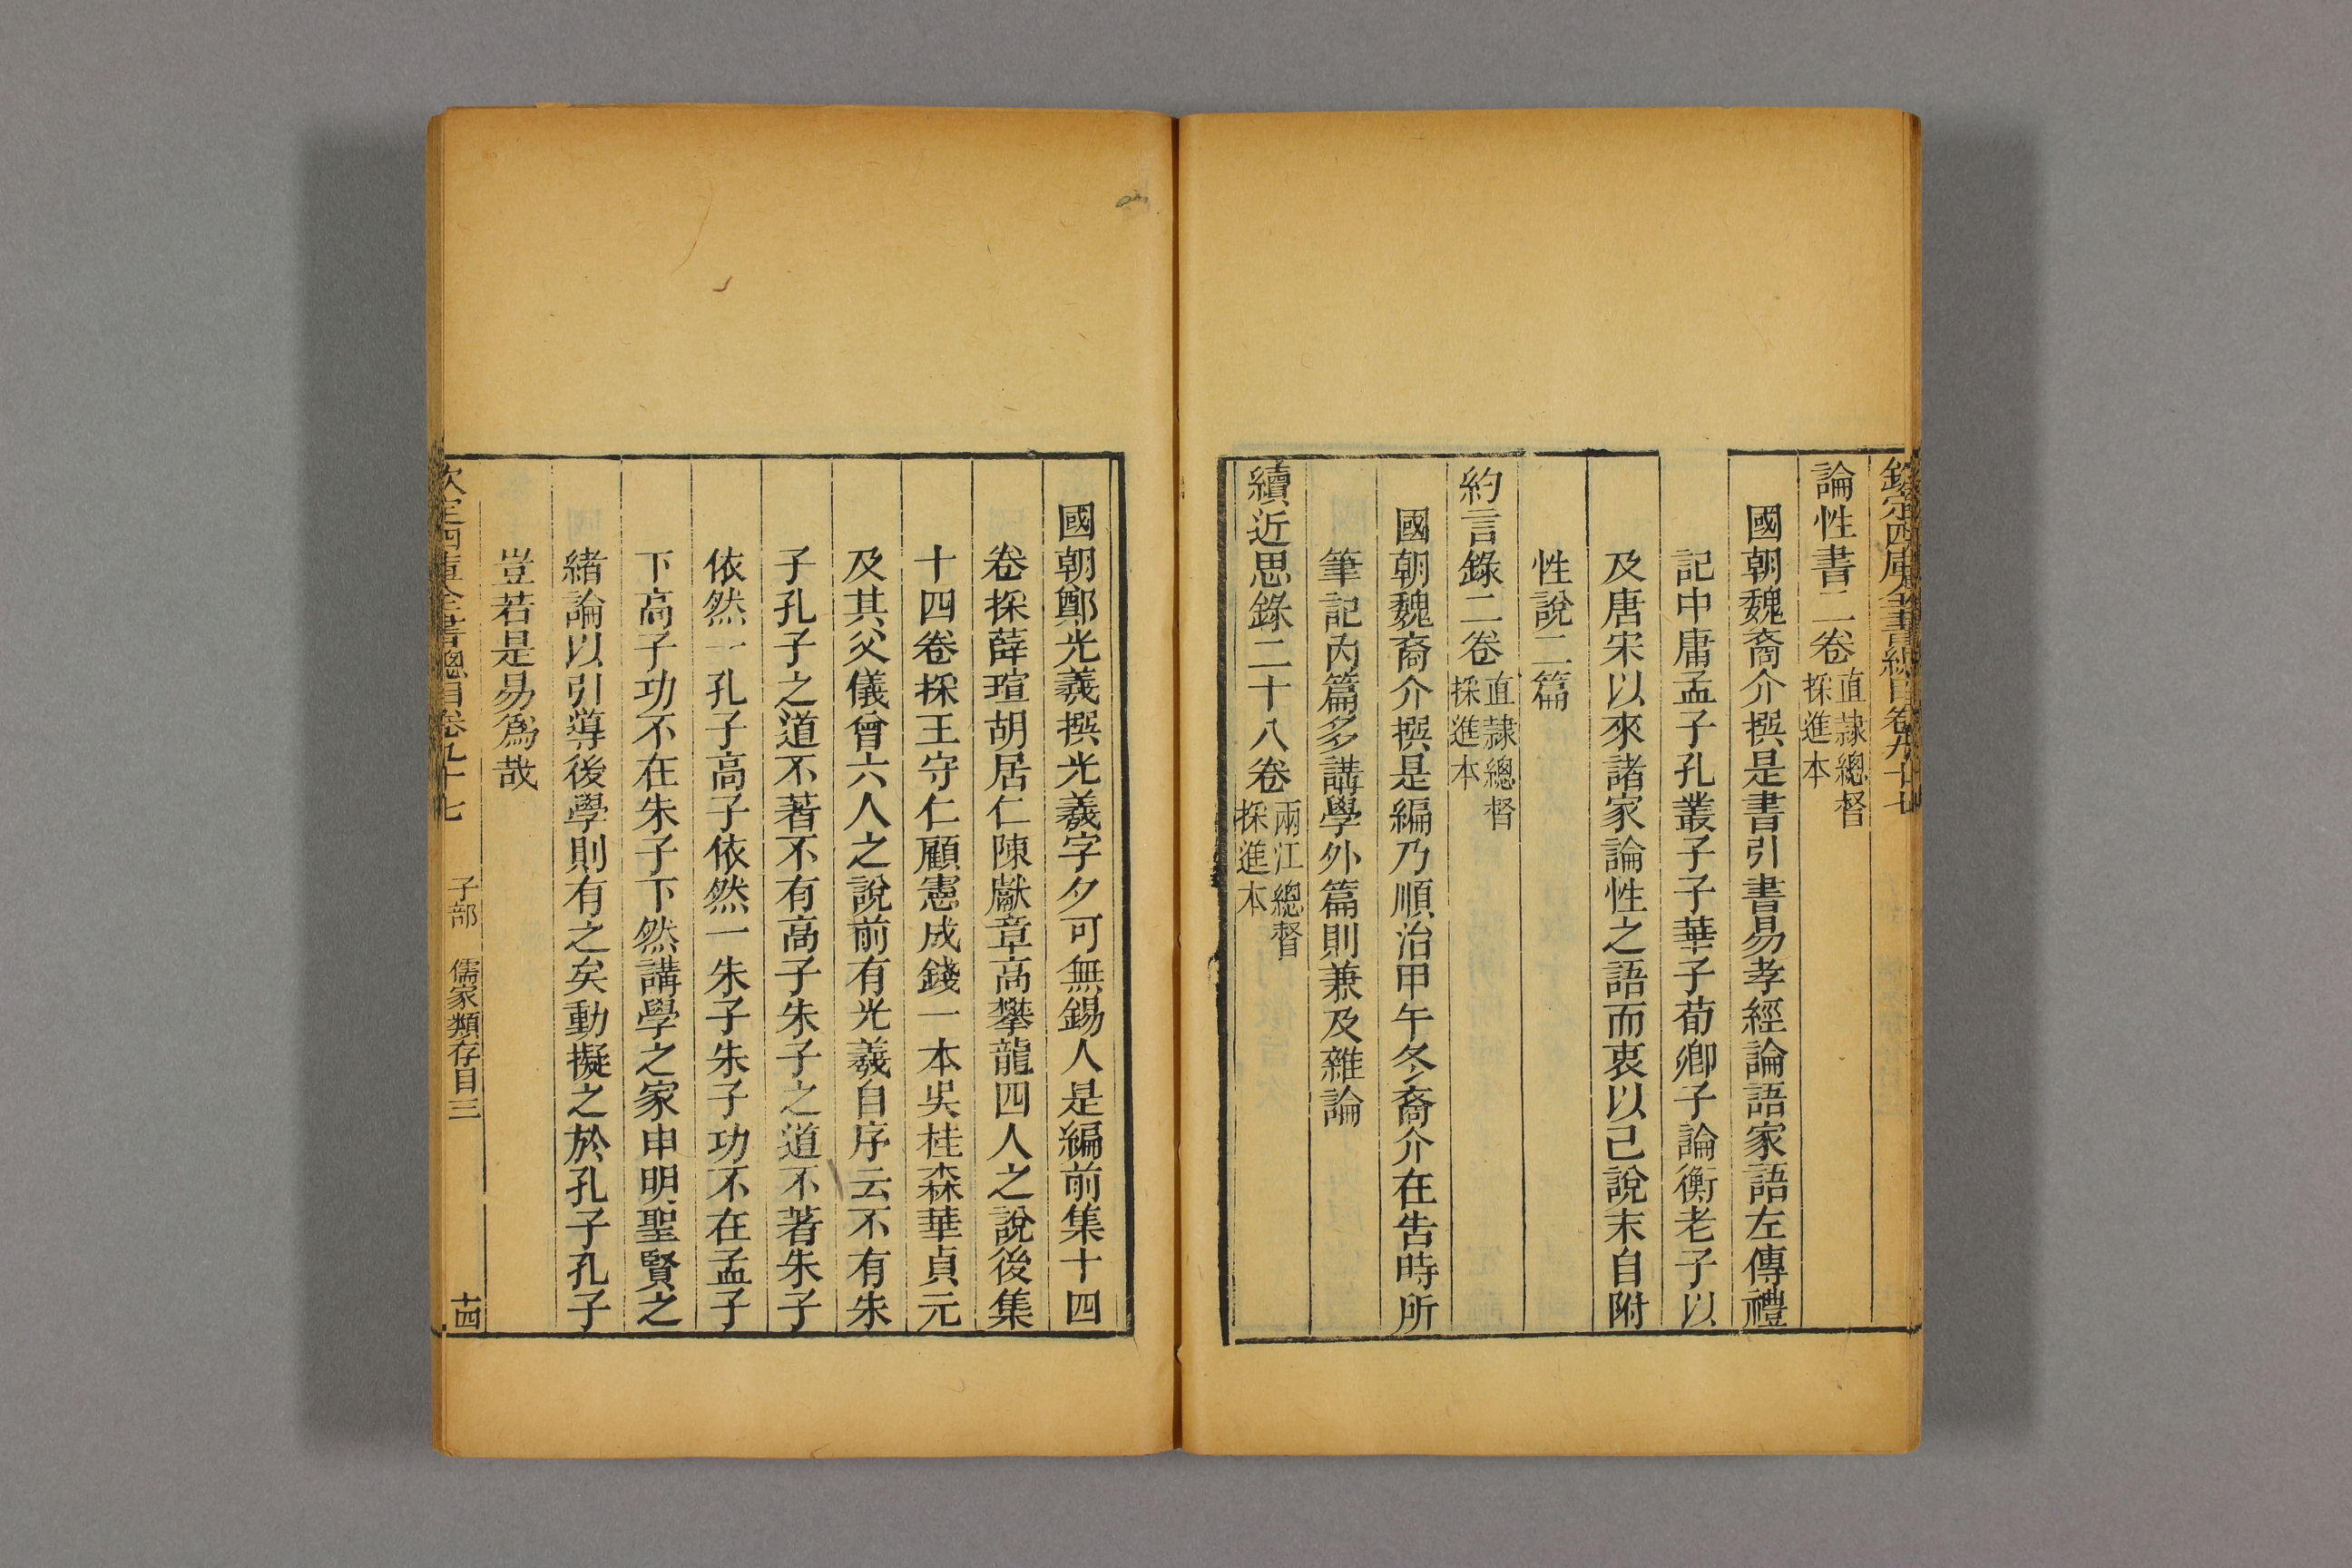 欽定四庫全書總目卷九十七
論性書二卷直隸總督採進本
國朝魏裔介撰是書引書易孝經論語家語左傳禮
記中庸孟子孔叢子子華子荀卿子論衡老子以
及唐宋以來諸家論性之語而衷以己說末自附
性說二篇
約言錄二卷直隸總督採進本
國朝魏裔介撰是編乃順治甲午冬裔介在告時所
筆記內篇多講學外篇則兼及雜論
續近思錄二十八卷兩江總督採進本
國朝鄭光羲撰光羲字夕可無錫人是編前集十四
卷採薛瑄胡居仁陳獻章高攀龍四人之說後集
十四卷採王守仁顧憲成錢一本吳桂森華貞元
及其父儀曾六人之說前有光羲自序云不有朱
子孔子之道不著不有高子朱子之道不著朱子
依然一孔子高子依然一朱子朱子功不在孟子
下高子功不在朱子下然講學之家申明聖賢之
緒論以引導後學則有之矣動擬之於孔子孔子
豈若是易為哉
欽定四庫全書總目卷九十七 子部 儒家類存目三 十四